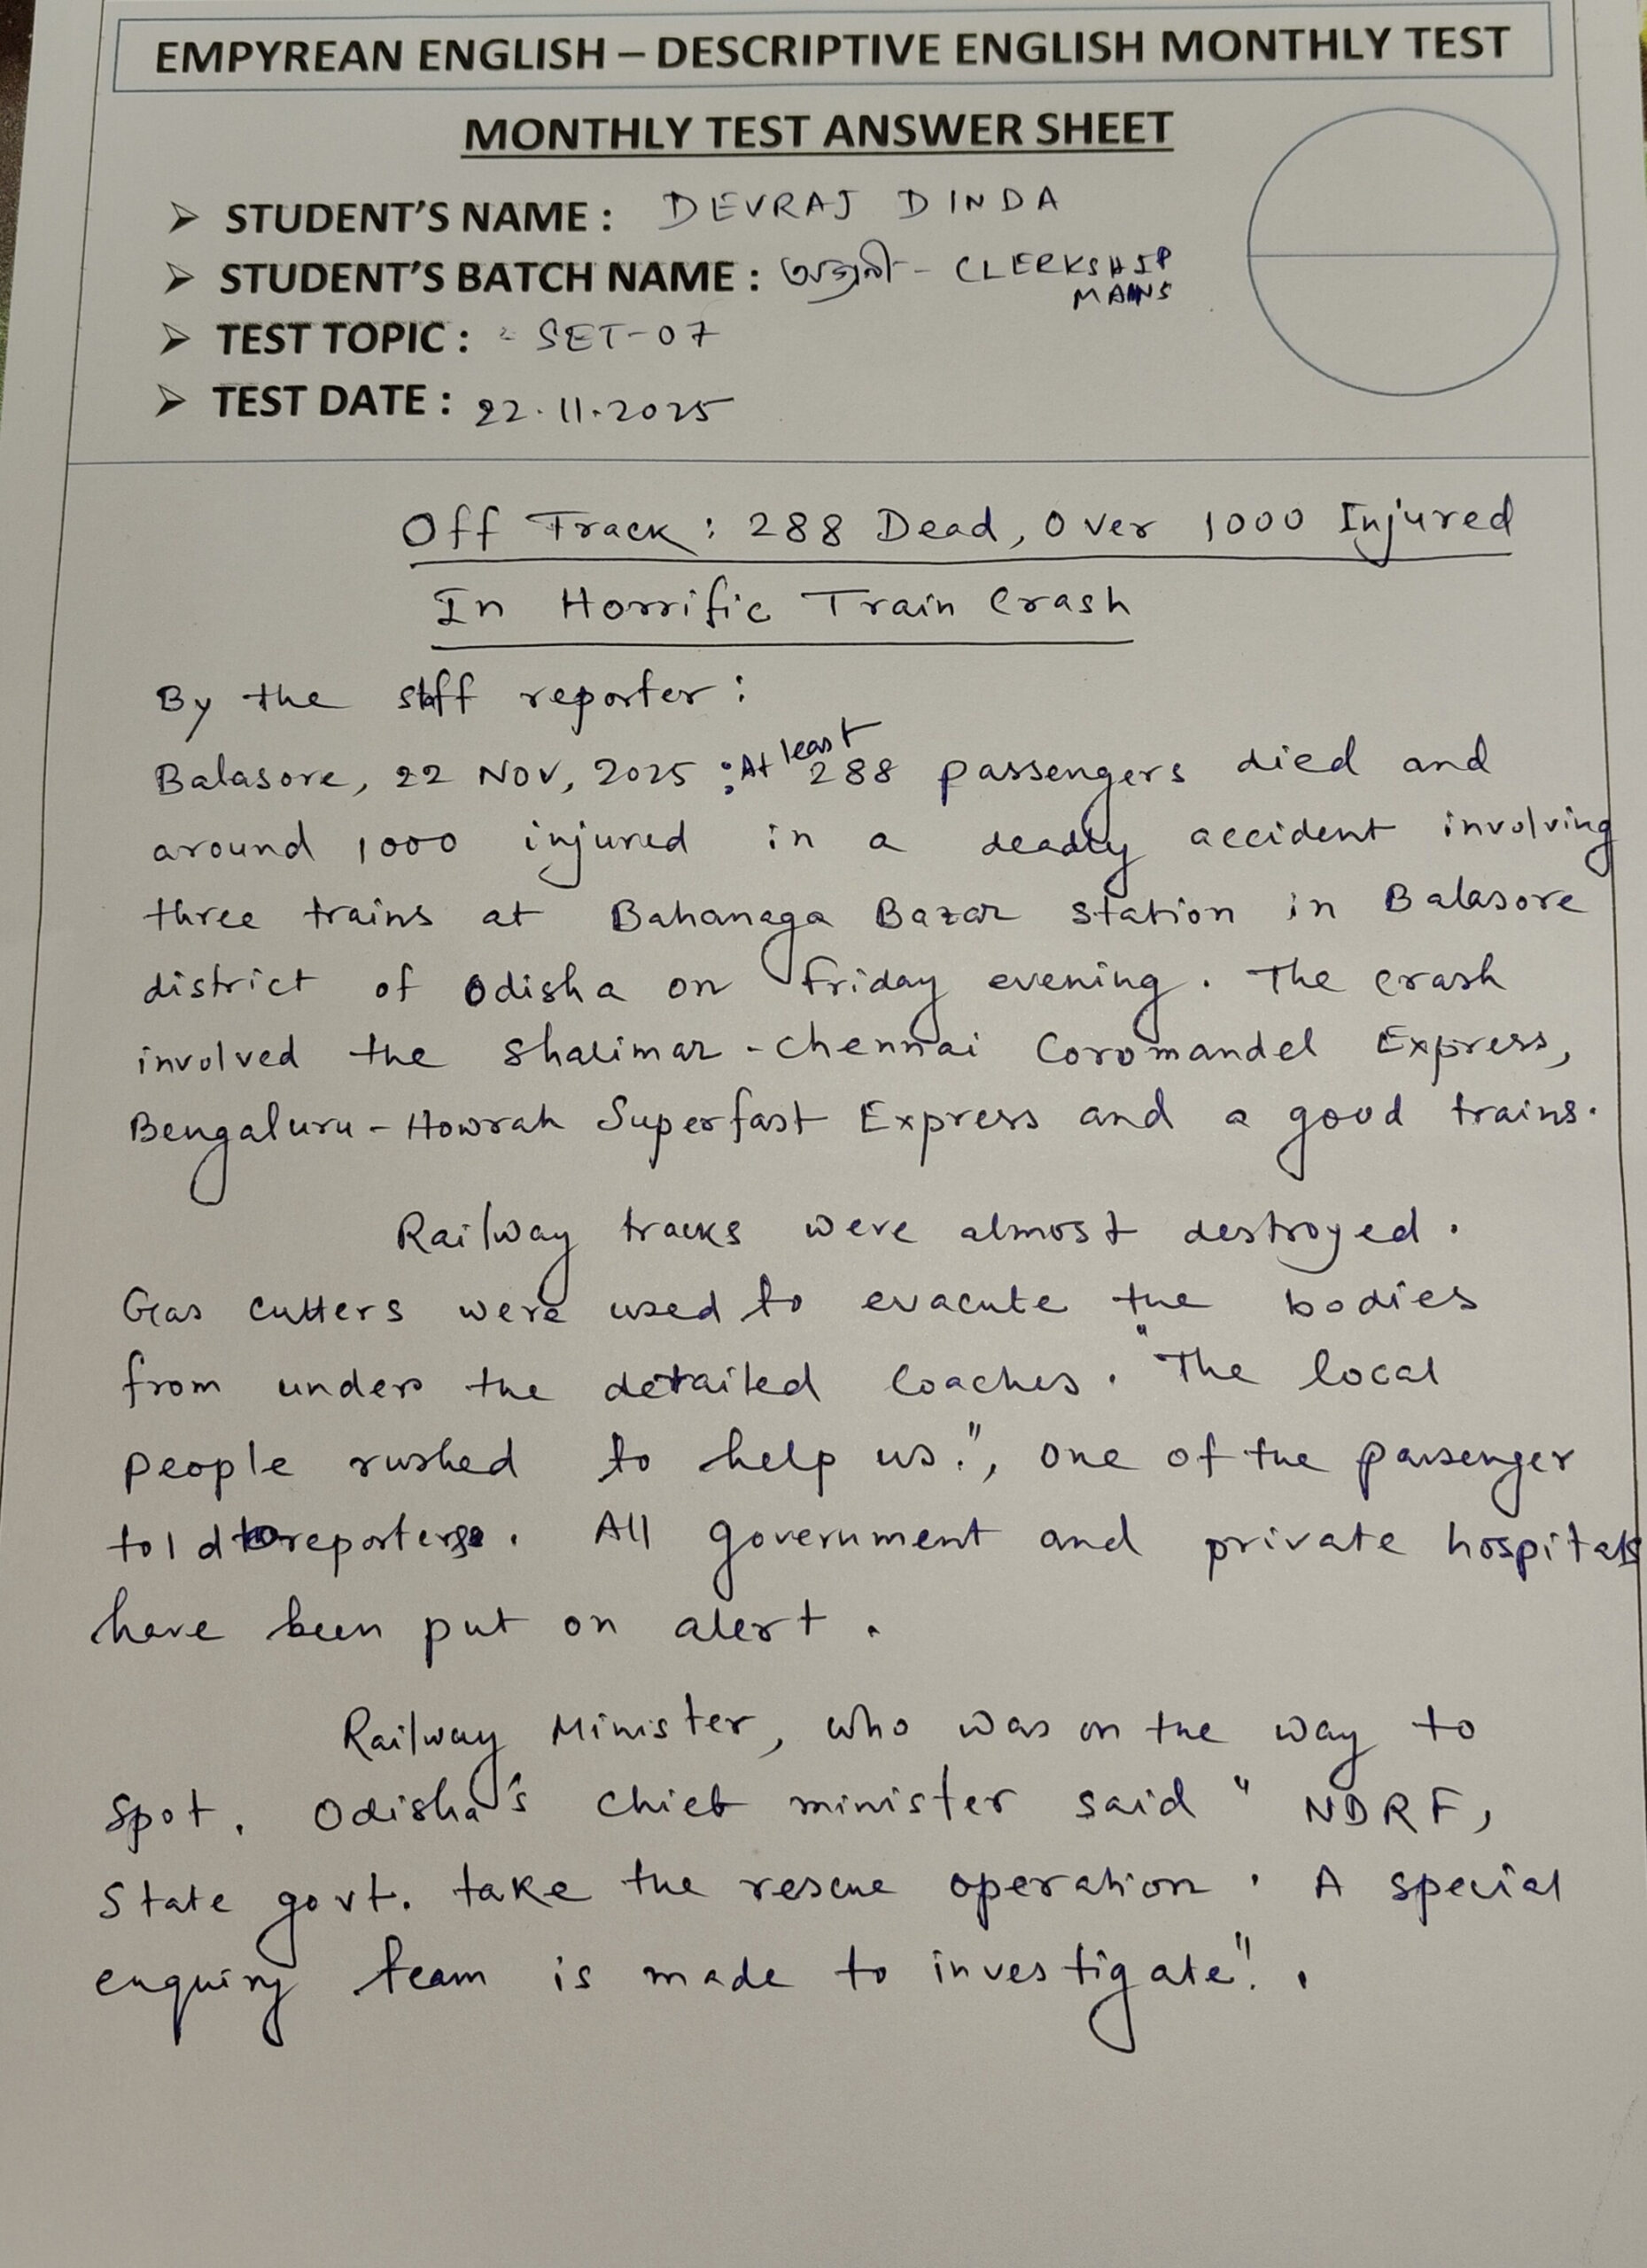 EMPYREAN ENGLISH – DESCRIPTIVE ENGLISH MONTHLY TEST
MONTHLY TEST ANSWER SHEET
➢ STUDENT'S NAME : DEVRAJ DINDA
➢ STUDENT'S BATCH NAME : - CLERKSHIP
MAINS
➢ TEST TOPIC : SET-07
➢ TEST DATE : 22.11.2025
Off Track : 288 Dead, Over 1000 Injured
In Horrific Train Crash
By the staff reporter :
Balasore, 22 Nov, 2025 : At least 288 passengers died and
around 1000 injured in a deadly accident involving
three trains at Bahanaga Bazar station in Balasore
district of Odisha on friday evening. The crash
involved the Shalimar - Chennai Coromandel Express,
Bengaluru - Howrah Superfast Express and a good trains.
Railway tracks were almost destroyed.
Gas cutters were used to evacute the bodies
from under the detailed coaches. "The local
people rushed to help us.", one of the passenger
told to reporters. All government and private hospitals
have been put on alert.
Railway Minister, who was on the way to
spot. Odisha's chief minister said " NDRF,
State govt. take the rescue operation. A special
enquiry team is made to investigate".